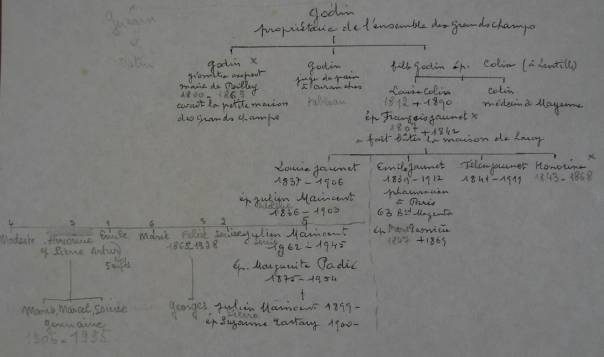 Godin
propriétaire de l'ensemble des Grands champs
Godin x
géomètre expert
maire de Poilley
1800 - 1869
avait la petite maison
des Grands champs
Godin
juge de paix
à Avranches
tableau
fille Godin ép. Colin (à Lentille)
Louise Colin
1812 + 1890
ép François Jaunet x
1807 + 1842
a fait bâtir la maison de
Colin
médecin à Mayenne
Louise Jaunet
1837 - 1906
ép Julien Maincent
1836 - 1903
Emile Jaunet
1839 - 1912
pharmacien
à Paris
63 Bd Magenta
ép
1847 + 1869
Jaunet
1841 - 1919
Honorine x
1843 - 1868
4 3 1 6 3 2 5
Modeste
ép Pierre
Emile
Marie
Felix
1862 1938
Louise
Julien Maincent
1962 - 1945
ép. Marguerite Padié
1875 - 1954
Marie, Marcel, Louise
germaine
1905 - 1995
Georges
Julien Maincent 1899 -
ép Suzanne 1900 -